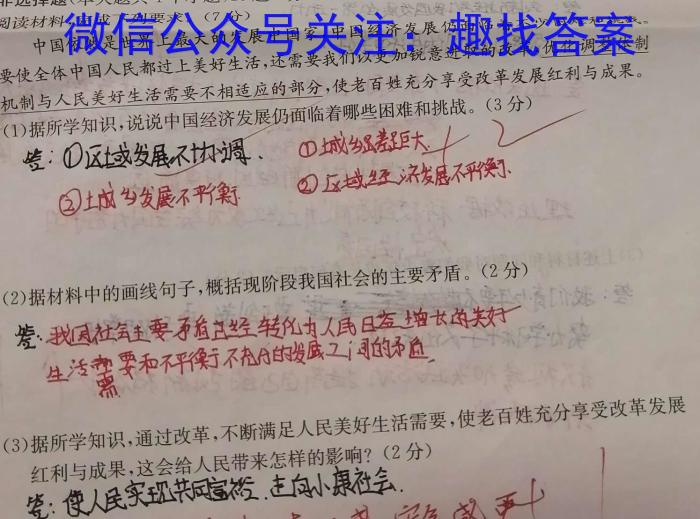 阅读材料,完成下列要求。(7分)
微信公众号关注:趣找答案
中国经济发展
要使全体中国人民都过上美好生活,还需要我们以更加锐意进取的改革,优化调
机制与人民美好生活需要不相适应的部分,使老百姓充分享受改革发展红利与成果。
(1)据所学知识,说说中国经济发展仍面临着哪些困难和挑战。(3分)
答:①区域发展不协调.
①城乡差距大
②城乡发展不平衡
②区域经济发展不平衡.
(2)据材料中的画线句子,概括现阶段我国社会的主要矛盾。(2分)
答:我国社会主要矛盾已经转化为人民日益增长的美好
生活需要和不平衡不充分的发展之间的矛盾
需
(3)据所学知识,通过改革,不断满足人民美好生活需要,使老百姓充分享受改革发展
红利与成果,这会给人民带来怎样的影响?(2分)
答:使人民实现共同富裕.走向小康社会.